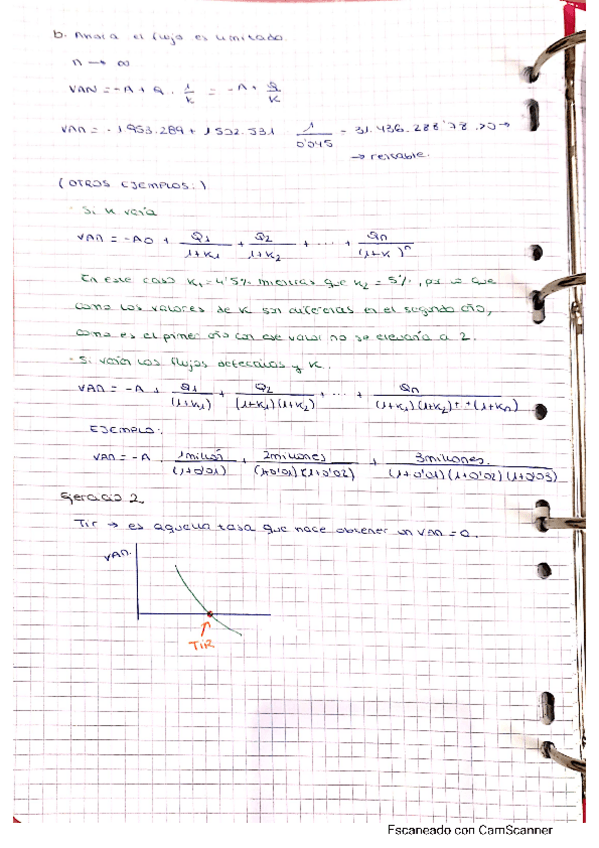 b. Ahora el flujo es ilimitado.
n → ∞
VAN = -A + Q · 1/k = -A + Q/k
VAN = - 1953.289 + 1502.531 · 1/0'045 = 31.436.288'78 >0 →
→ rentable.
(OTROS EJEMPLOS:)
- Si k varía
VAN = -A0 + Q1/(1+k1) + Q2/(1+k2) + ... + Qn/(1+k)^n
En este caso k1 = 4'5% mientras que k2 = 5%, que
como los valores de k son diferentes en el segundo año,
como es el primer año con ese valor no se elevaría a 2.
- Si varían los flujos de caja y k.
VAN = -A + Q1/(1+k1) + Q2/(1+k1)(1+k2) + ... + Qn/(1+k1)(1+k2)+..+(1+kn)
EJEMPLO:
VAN = -A 1 millón/(1+0'01) + 2 millones/(1+0'01)(1+0'02) + 3 millones./(1+0'01)(1+0'02)(1+0'03)
Ejercicio 2.
Tir → es aquella tasa que hace obtener un VAN = 0.
VAN.
TIR
Escaneado con CamScanner